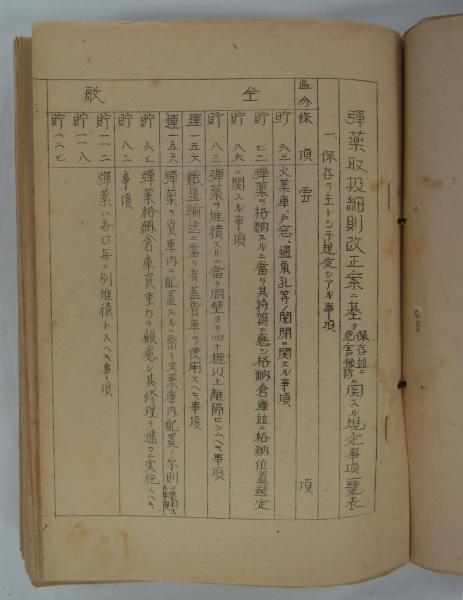 彈藥取扱細則改正案ニ基ク保存並ニ危害豫防ニ関スル規定事項一覽表
一、保存ヲ主トシテ規定シアル事項
區分 條項 要項
全般
貯 六三 火薬庫ノ戸窓、通氣孔等ノ開閉ニ関スル事項
貯 七二 彈藥ヲ格納スルニ當リ其特質ニ應シ格納倉庫並ニ格納位置選定
貯 八六 ニ関スル事項
貯 八三 彈藥ヲ堆積スルニ當リ周壁ヨリ四十糎以上離隔セシムヘキ事項
運 一五六 鐵道輸送ニ當リ有蓋貨車ヲ使用スヘキ事項
運 一五六 彈藥ヲ貨車内ニ配置スルニ當リ火薬庫内配置ノ原則
貯 六七 彈藥格納倉庫ハ負重力ヲ顧慮シ其修理ヲ速カニ実施スヘキ
貯 八二 事項
貯 一一二 彈藥ハ各口毎ニ別堆積トスヘキ事項
貯 一一八
貯 一二七